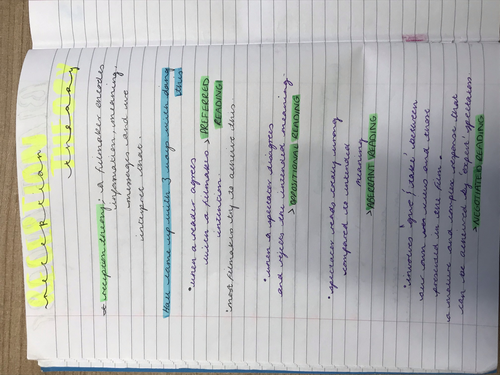 RECEPTION THEORY
reception theory
→ reception theory: a filmmaker encodes
information, meaning,
messages and we
interpret that.
Hall came up with 3 ways when doing
this!
• when a reader agrees
with a filmmakers → PREFERRED
intention. READING!
• most filmmakers try to achieve this.
• when a spectator disagrees
and rejects the intended meaning
→ OPPOSITIONAL READING
• spectator reads codes wrong
compared to intended
meaning
→ ABERRANT READING
• involves 'give / take' between
our own views and those
presented in the film.
• a mature and complex response that
can be achieved by 'expert' spectators
→ NEGOTIATED READING